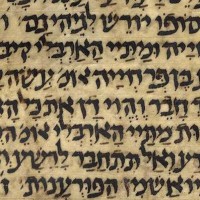 סופו יורש לגיהנם
ומתיי הארבלי
בן פרחייה אומ' עשה
חבר והוי דן את כל
מתיי הארבלי אומ'
רע ואל תתחבר לרשע
מן הפורענות